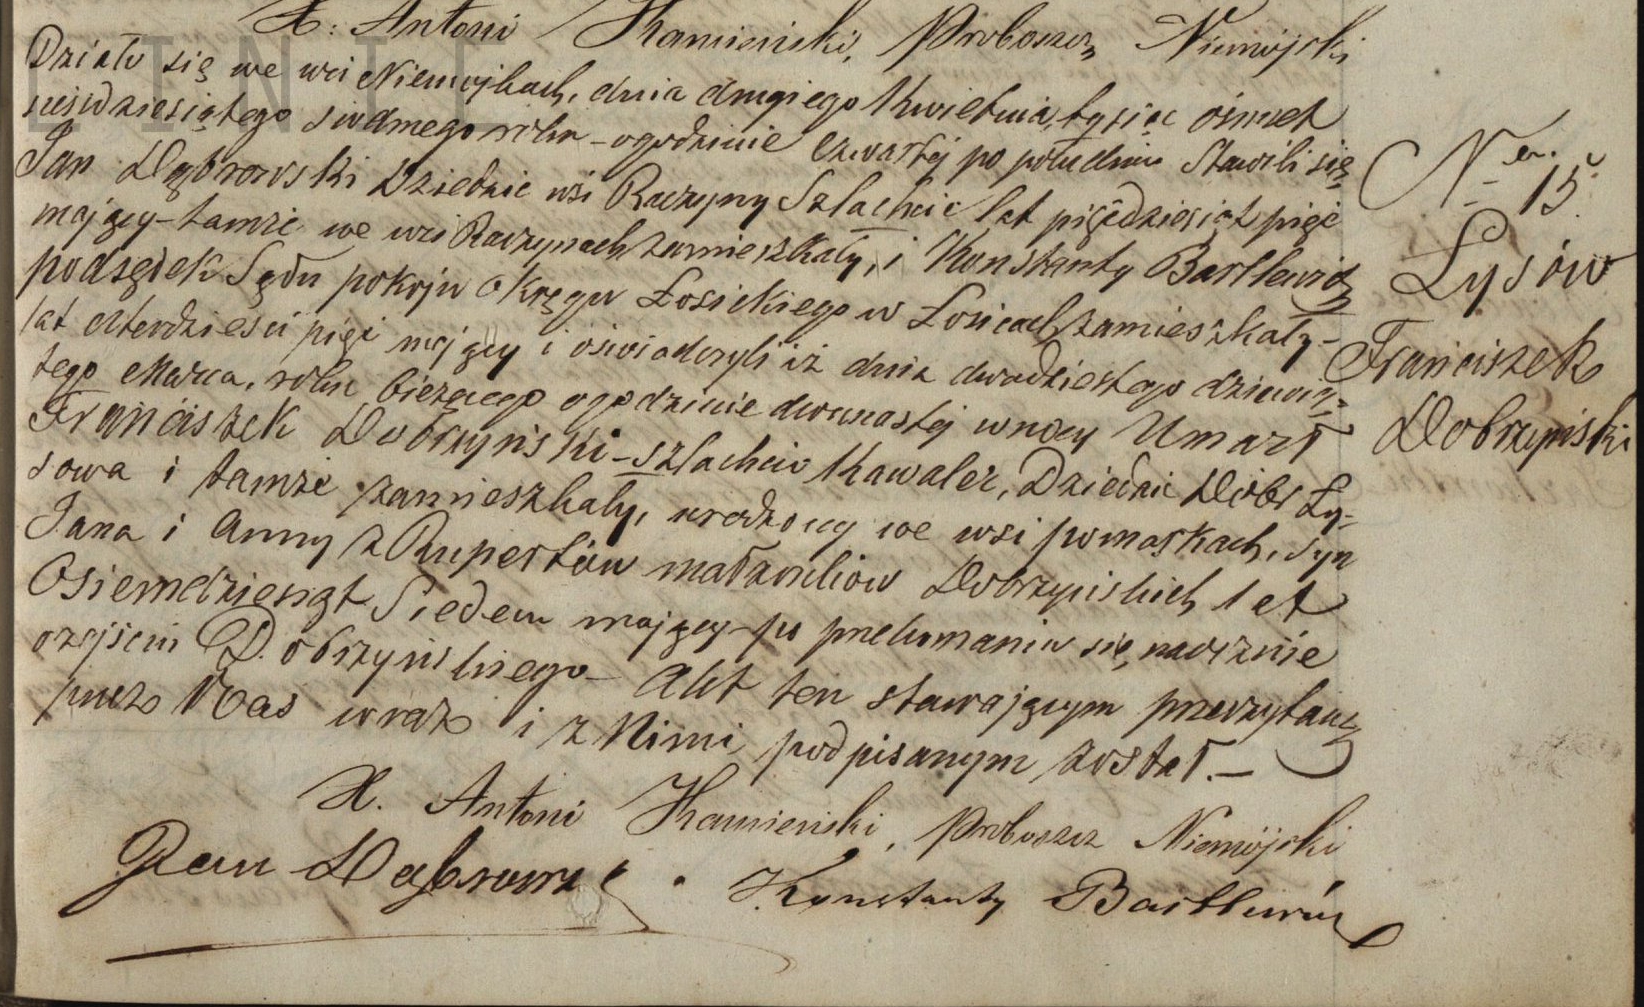 X. Antoni Kamieński, Proboszcz Niemojski
Działo się we wsi Niemojkach, dnia drugiego Kwietnia, tysiąc ośmset
sześdziesiątego siódmego roku – ogodzinie czwartej po południu Stawili się
Jan Dąbrowski Dziedzic wsi Raczyny Szlachcic lat pięćdziesiąt pięć
mający – tamże we wsi Raczynach zamieszkały, i Konstanty Bartlewicz
podsędek Sądu pokoju Okręgu Łosickiego w Łosicach zamieszkały –
lat czterdzieści pięć mający i oświadczyli iż dnia dwudziestego dziewią=
tego Marca, roku bieżącego ogodzinie dwunastej wnocy Umarł
Franciszek Dobrzyński – szlachcic Kawaler, Dziedzic Dóbr Ły=
sowa i tamże zamieszkały, urodzony we wsi pomaskach, syn
Jana i Anny z Rupertów małżonków Dobrzyńskich lat
Osiemdziesiąt Siedem mający – po przekonaniu się, naocznie
ozejściu Dobrzyńskiego – Akt ten stawającym przeczytany
przez Nas wraz i z Nimi podpisanym został. –
X. Antoni Kamieński, Proboszcz Niemojski
Jan Dąbrowski
Konstanty Bartlewicz
Ner. 15.
Łysów
Franciszek
Dobrzyński